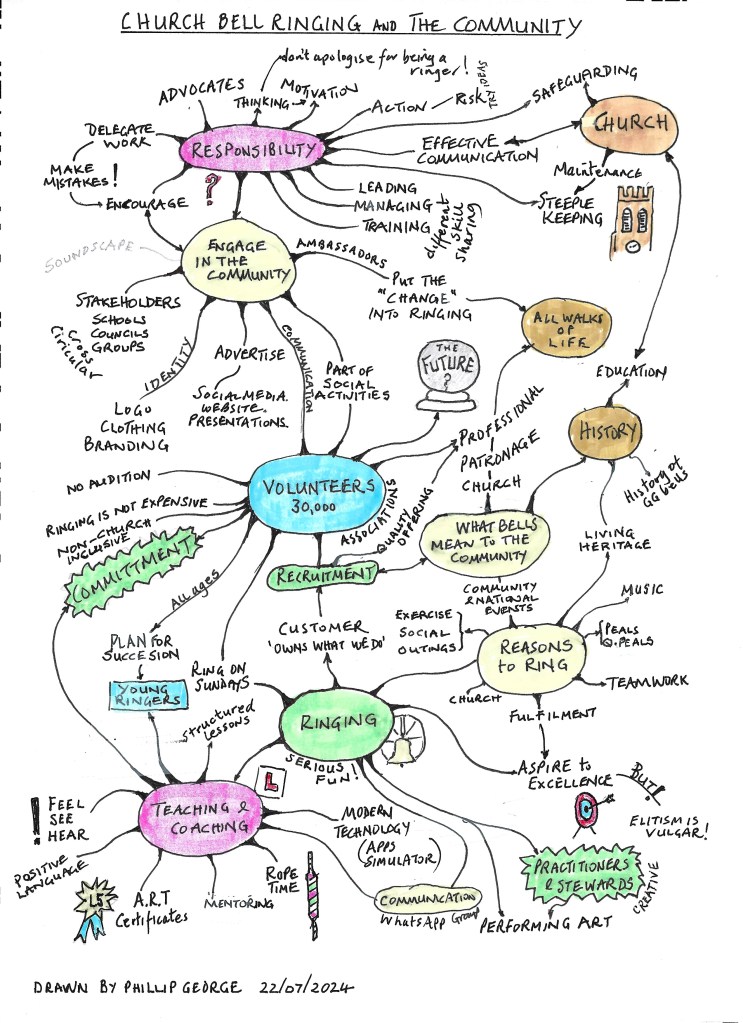 CHURCH BELL RINGING AND THE COMMUNITY
don't apologise for being a
ringer!
ADVOCATES
THINKING
MOTIVATION
ACTION
Risk
TRY IDEAS
SAFEGUARDING
CHURCH
DELEGATE
WORK
RESPONSIBILITY
EFFECTIVE
COMMUNICATION
MAKE
MISTAKES!
ENCOURAGE
?
Maintenance
STEEPLE
KEEPING
LEADING
MANAGING
TRAINING
different
skill
sharing
SOUNDSCAPE
ENGAGE
IN THE
COMMUNITY
AMBASSADORS
PUT THE
"CHANGE"
INTO RINGING
ALL WALKS
OF
LIFE
STAKEHOLDERS
SCHOOLS
COUNCILS
GROUPS
Cross
Ciricular
IDENTITY
LOGO
CLOTHING
BRANDING
ADVERTISE
SOCIAL MEDIA.
WEBSITE.
PRESENTATIONS.
COMMUNICATION
PART OF
SOCIAL
ACTIVITIES
THE
FUTURE
?
EDUCATION
HISTORY
History of
GG bells
LIVING
HERITAGE
PROFESSIONAL
PATRONAGE
CHURCH
NO AUDITION
RINGING IS NOT EXPENSIVE
NON-CHURCH
INCLUSIVE
COMMITTMENT
VOLUNTEERS
30,000
ASSOCIATIONS
QUALITY
OFFERING
WHAT BELLS
MEAN TO THE
COMMUNITY
RECRUITMENT
ALL ages
COMMUNITY
& NATIONAL
EVENTS
PLAN FOR
SUCCESION
YOUNG
RINGERS
RING ON
SUNDAYS
CUSTOMER
'OWNS WHAT WE DO'
EXERCISE
SOCIAL
OUTINGS
REASONS
to RING
MUSIC
PEALS
Q.PEALS
TEAMWORK
CHURCH
FULFILMENT
structured
lessons
RINGING
SERIOUS
FUN!
L
ASPIRE to
EXCELLENCE
BUT!
ELITISM IS
VULGAR!
! FEEL
SEE
HEAR
TEACHING &
COACHING
MODERN
TECHNOLOGY
(APPS
SIMULATOR)
POSITIVE
LANGUAGE
L5
A.R.T
Certificates
MENTORING
ROPE
TIME
COMMUNICATION
WhatsApp Group
PRACTITIONERS
& STEWARDS
CREATIVE
PERFORMING ART
DRAWN BY PHILLIP GEORGE 22/07/2024